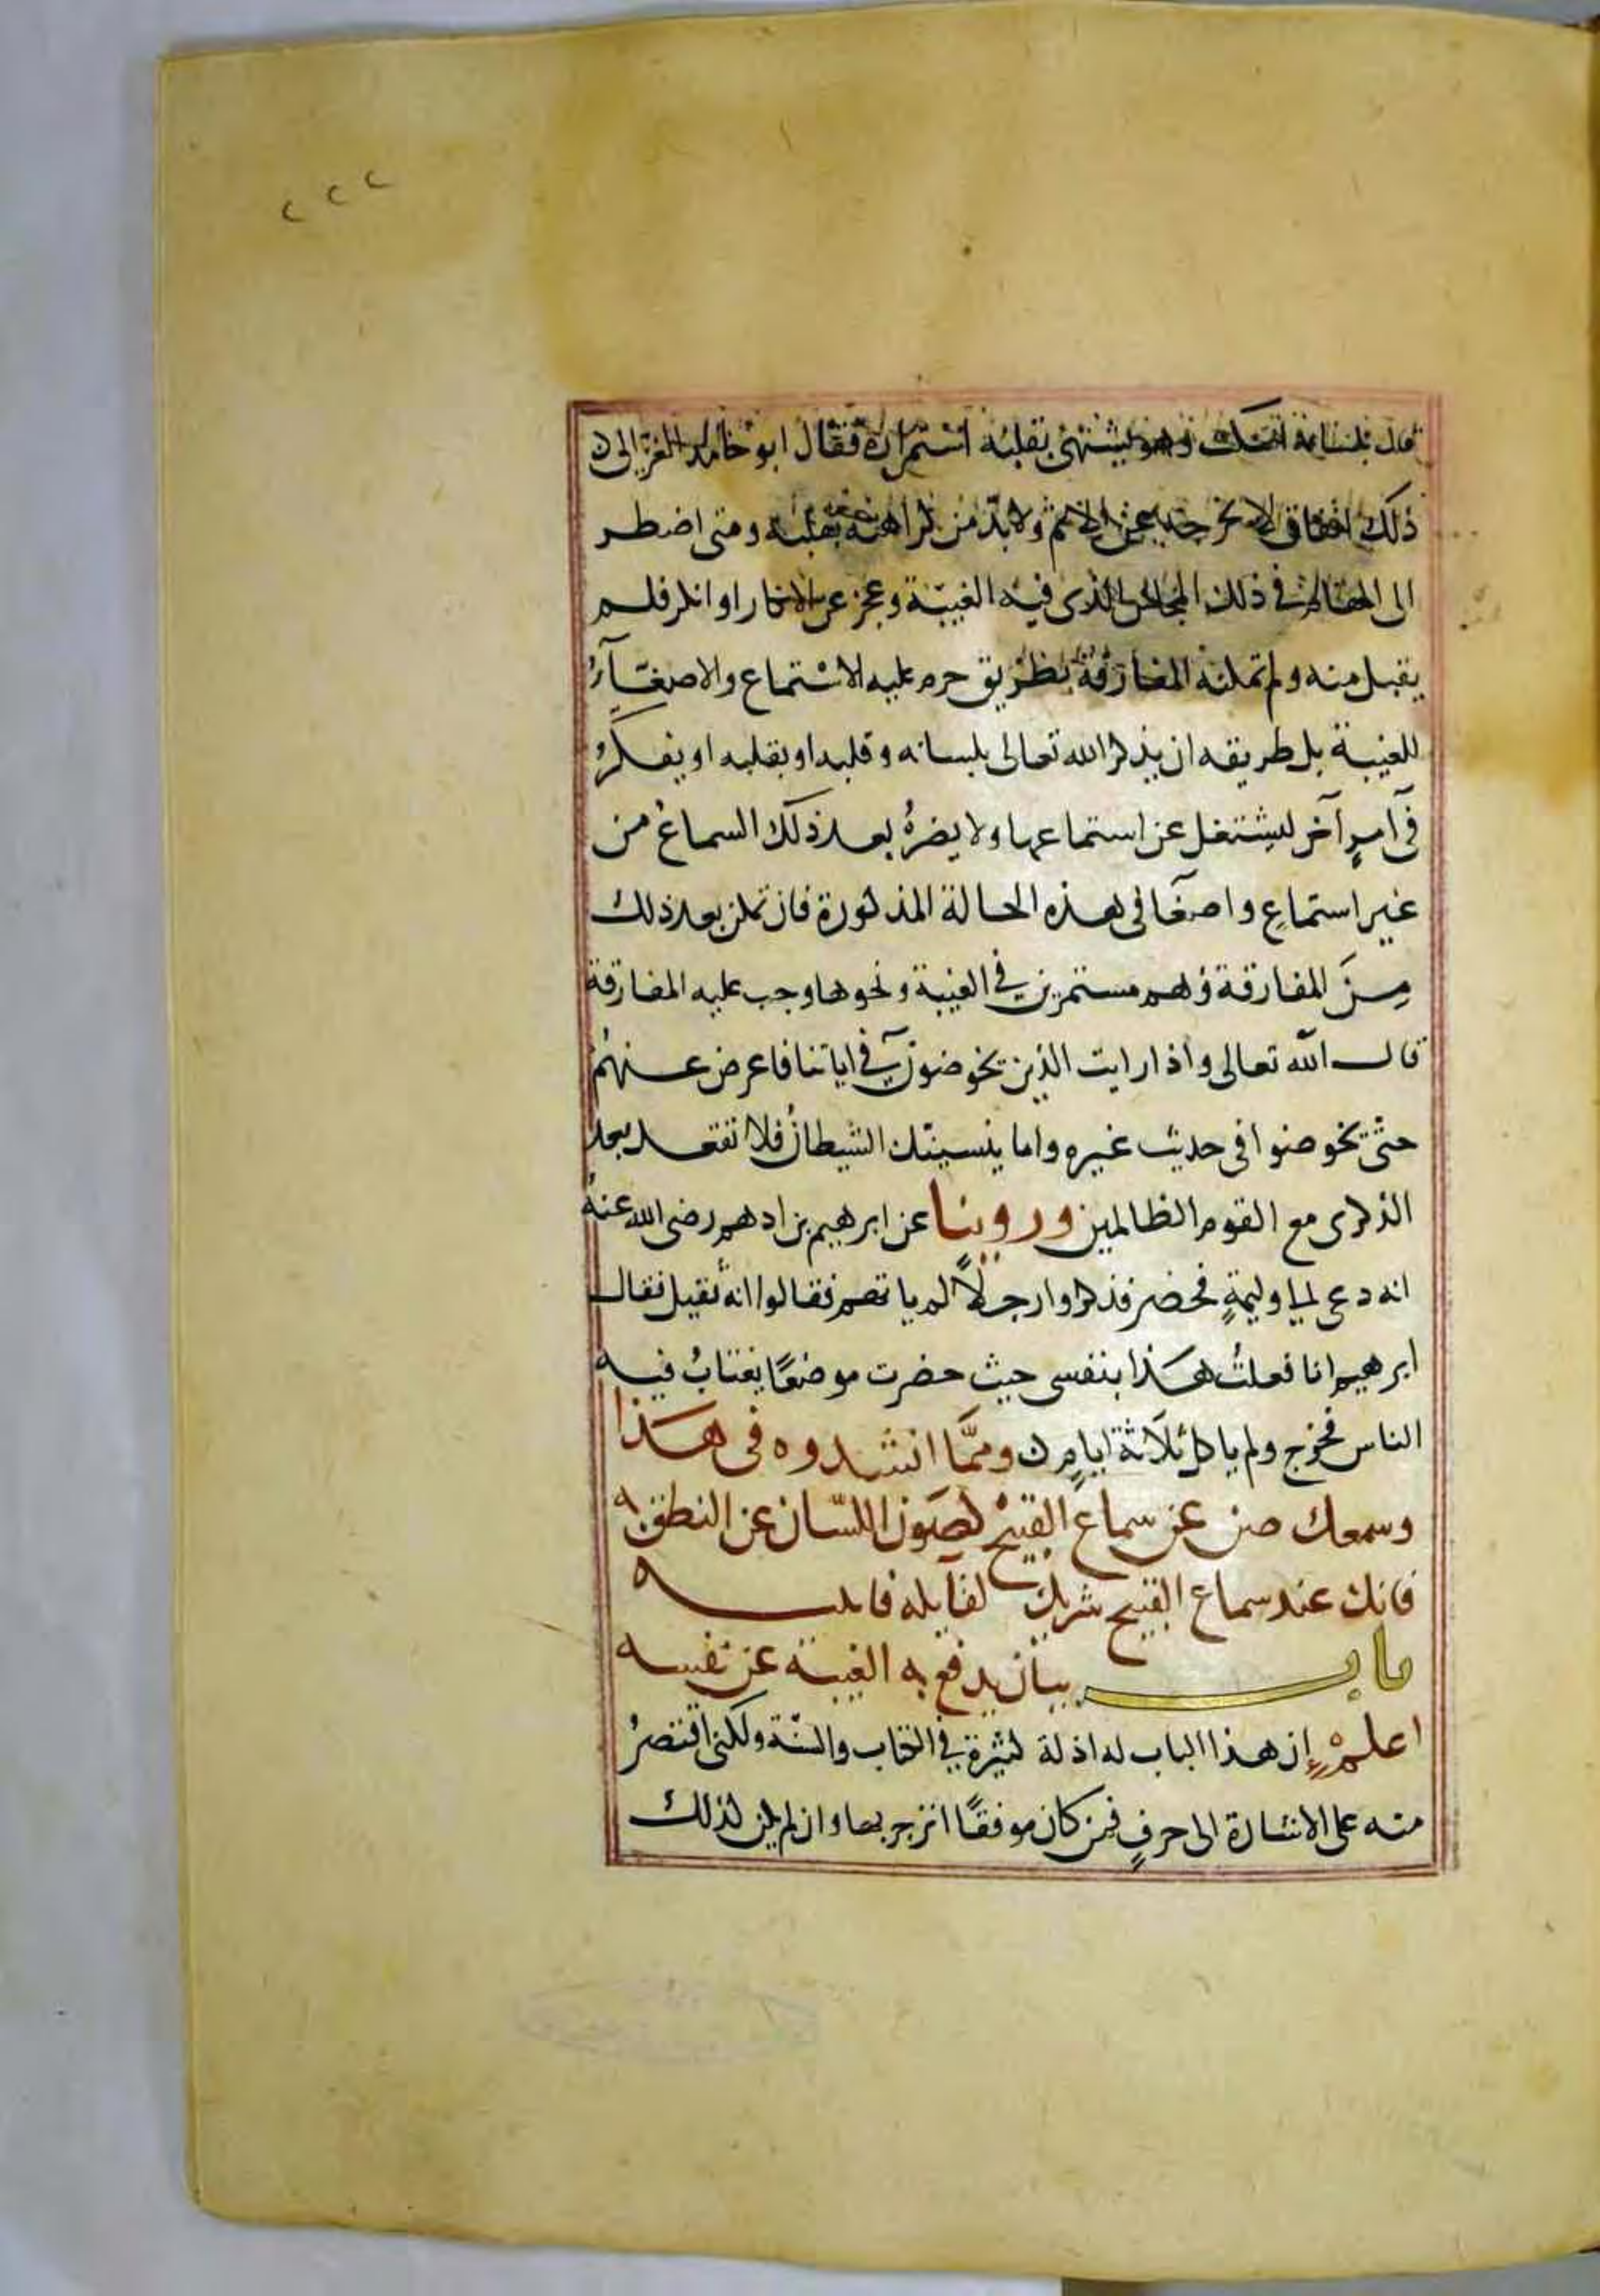 ٢٢٢
قال بلسانه اسكت وهو يشتهى بقلبه استمراره فقال ابو حامد الغزالى ن
ذلك نفاق لا يخرجه عن الاثم ولابدّ من كراهته بقلبه ومتى اضطر
الى المقام فى ذلك المجلس الذى فيه الغيبة وعجز عن الانكار او انكر فلم
يقبل منه ولم تمكنه المفارقة بطريق حرم عليه الاستماع والاصغآءُ
للغيبة بل طريقه ان يذكر الله تعالى بلسانه وقلبه او بقلبه او يفكرُ
فى امرٍ آخر ليشتغل عن استماعها ولا يضرهُ بعد ذلك السماعُ من
غير استماعٍ واصغآ فى هذه الحالة المذكورة فان تمكن بعد ذلك
مِنَ المفارقة وُهم مستمرين فى الغيبة ونحوها وجب عليه المفارقة
قال الله تعالى واذا رايت الذين يخوضون فى اياتنا فاعرض عنهُمْ
حتّى يخوضوا فى حديث غيره واما ينسينّك الشيطانُ فلا تقعد بعد
الذكرى مع القوم الظالمين وروينا عن ابرهيم بن ادهم رضى الله عنهُ
انه دعى لى وليمةٍ فحضر فذكروا رجلًا لم ياتهم فقالوا انهُ ثقيل فقال
ابرهيم انا فعلتُ هذا بنفسى حيث حضرت موضعًا يغتابُ فيه
الناس فخرج ولم ياكل ثلاثة ايامٍ ن وممّا انشدوه فى هذا
وسمعك صن عن سماع القبيح كصون اللسان عن النطق به
فانك عند سماع القبيح شريك لقآيله فانتبه
باب بيان يدفع به الغيبة عن نفسه
اعلمْ إن هذا الباب له ادلة كثيرة فى الكتاب والسنّة ولكنى اقتصرُ
منه على الاشارة الى حرفٍ فمن كان موفقًا انزجر بها وان لم يكن كذلك